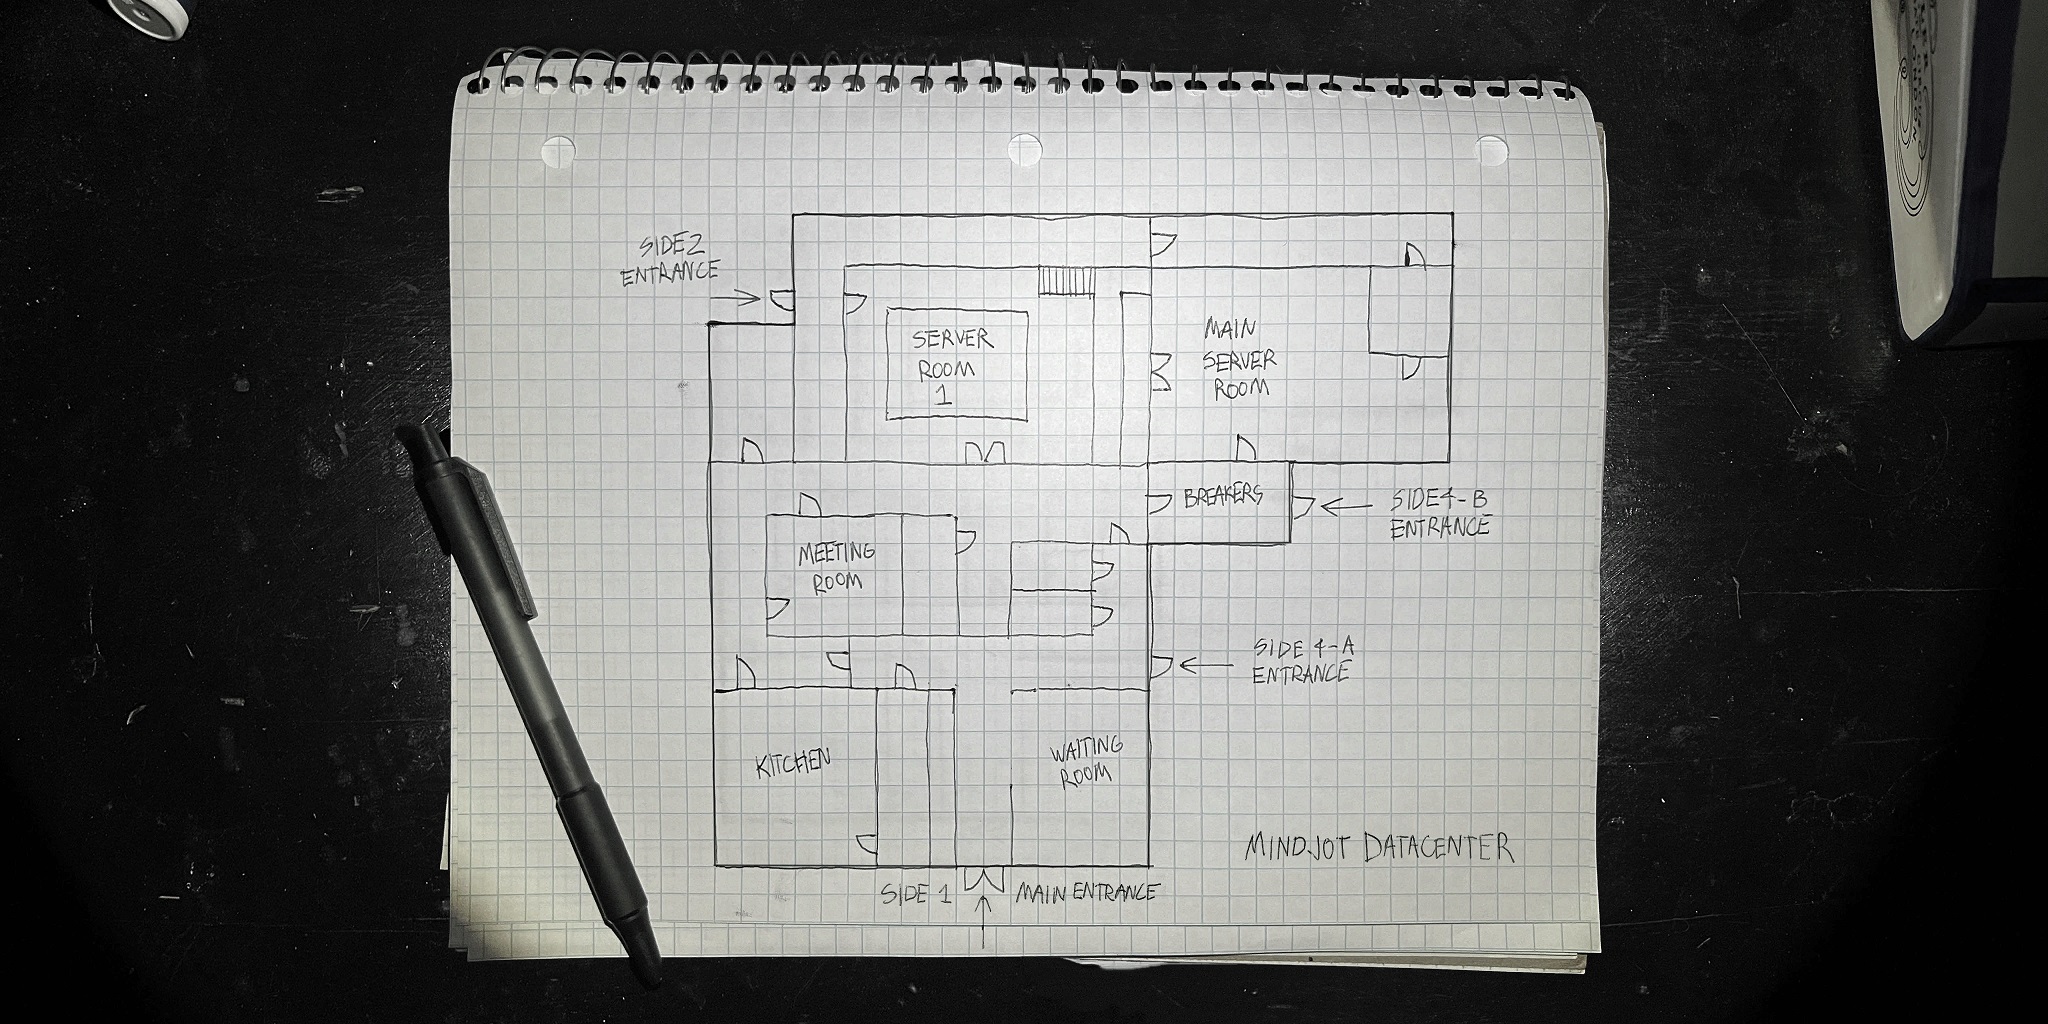 SIDE2
ENTRANCE
SERVER
ROOM
1
MAIN
SERVER
ROOM
BREAKERS
SIDE4-B
ENTRANCE
MEETING
ROOM
SIDE 4-A
ENTRANCE
KITCHEN
WAITING
ROOM
MINDJOT DATACENTER
SIDE 1
MAIN ENTRANCE
LONDON